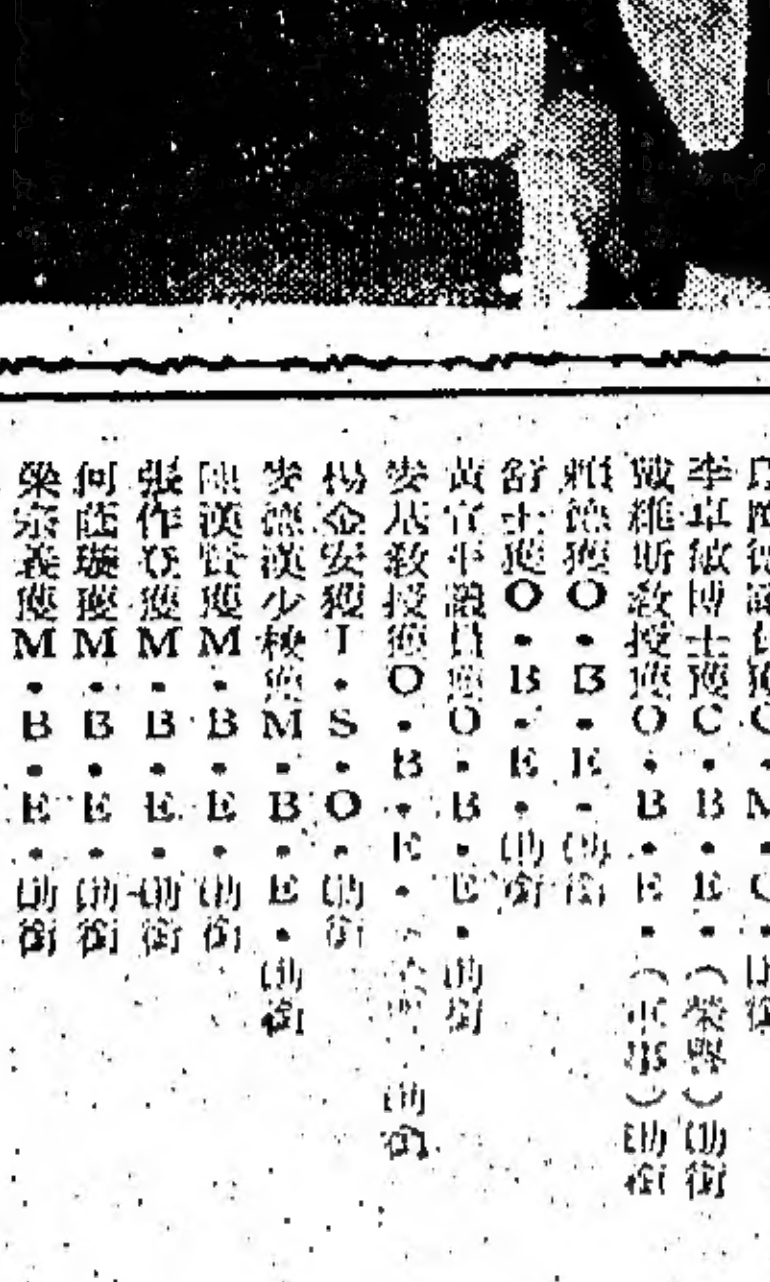 獲C.M.G.勳銜
李卓敏博士獲C.B.E.(榮譽)勳銜
戴維斯教授獲O.B.E.(軍事)勳銜
賴德獲O.B.E.勳銜
舒士獲O.B.E.勳銜
黃宣平議員獲O.B.E.勳銜
安基教授獲O.B.E.勳銜
楊金安獲I.S.O.勳銜
麥德漢少校獲M.B.E.勳銜
陳漢賢獲M.B.E.勳銜
張作獲M.B.E.勳銜
何蔭璇獲M.B.E.勳銜
梁宗義獲M.B.E.勳銜